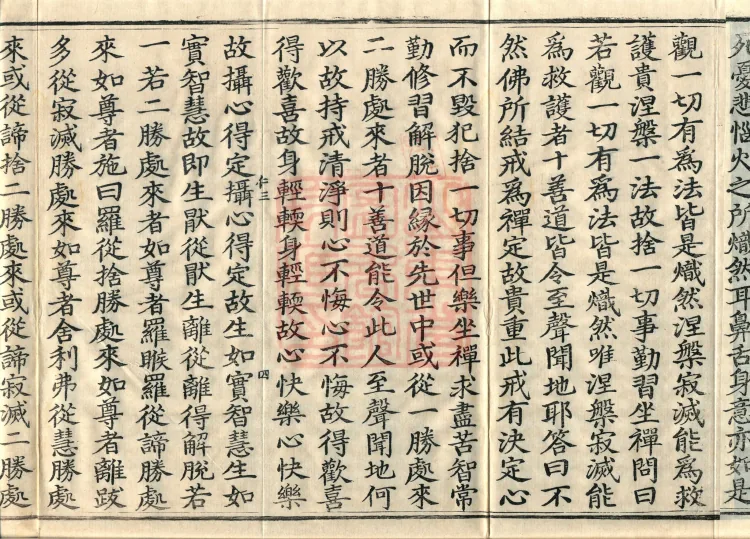 死憂悲惱火之所熾然耳鼻舌身意亦如是
觀一切有為法皆是熾然涅槃寂滅能為救
護貴涅槃一法故捨一切事勤習坐禪問曰
若觀一切有為法皆是熾然唯涅槃寂滅能
為救護者十善道皆令至聲聞地耶答曰不
然佛所結戒為禪定故貴重此戒有決定心
而不毀犯捨一切事但樂坐禪求盡苦智常
勤修習解脫因緣於先世中或從一勝處來
二勝處來者十善道能令此人至聲聞地何
以故持戒清淨則心不悔心不悔故得歡喜
得歡喜故身輕輭身輕輭故心快樂心快樂
仁三
四
故攝心得定攝心得定故生如實智慧生如
實智慧故即生猒從猒生離從離得解脫若
一若二勝處來者如尊者羅睺羅從諦勝處
來如尊者施曰羅從捨勝處來如尊者離跋
多從寂滅勝處來如尊者舍利弗從慧勝處
來或從諦捨二勝處來或從諦寂滅二勝處